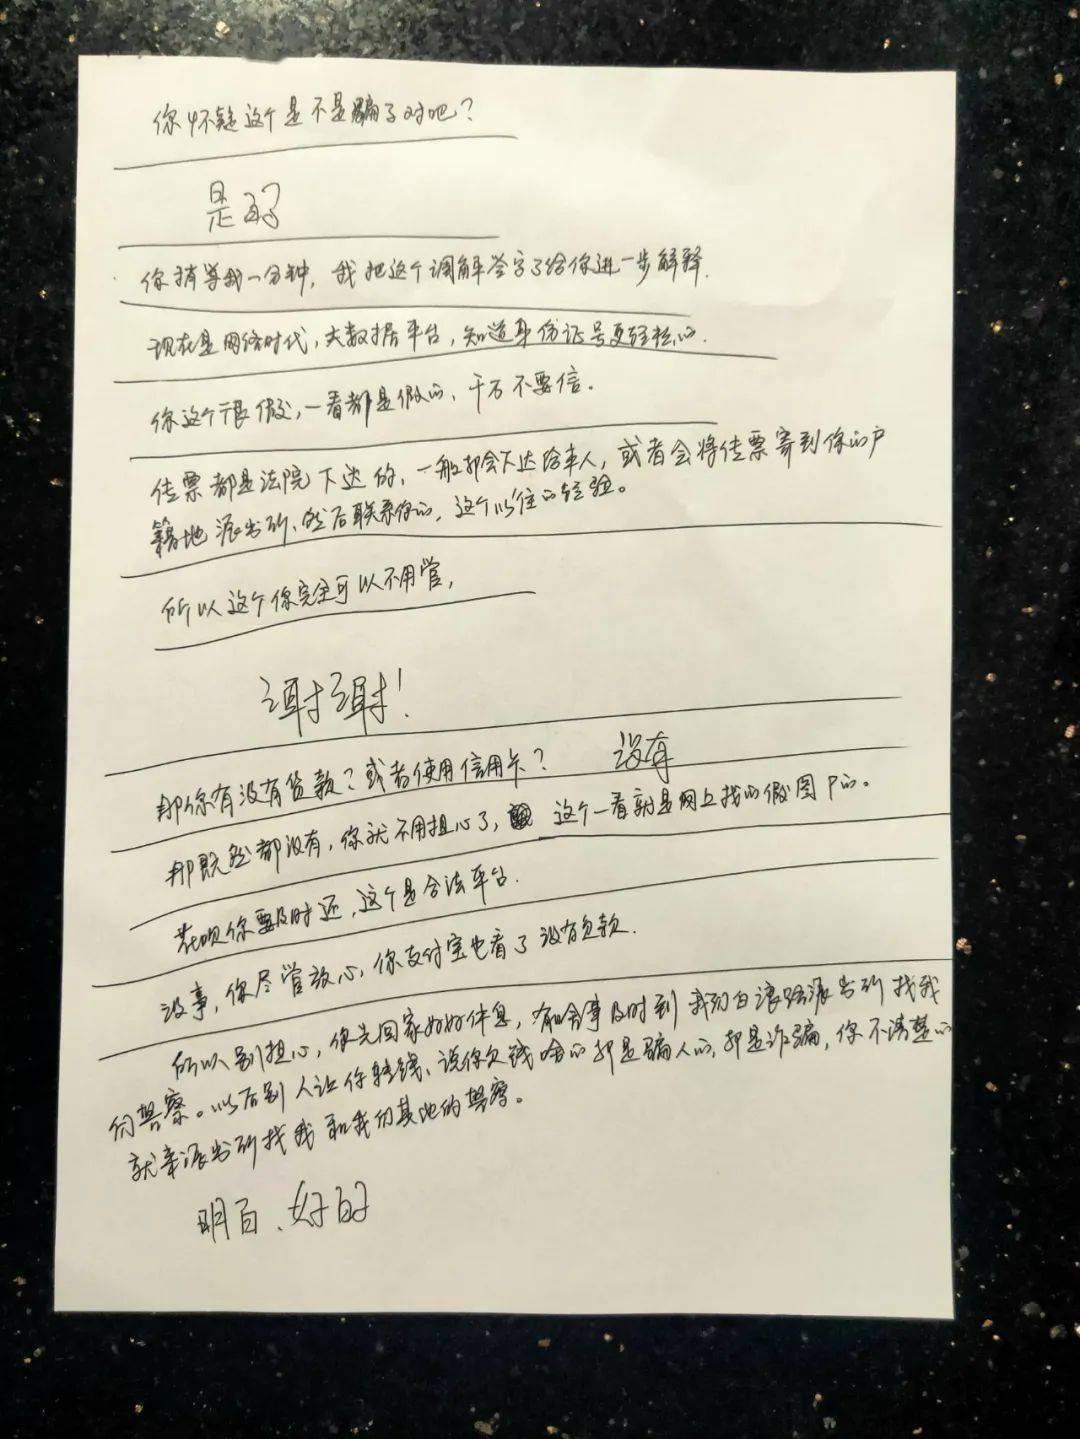 你怀疑这个是不是骗子对吧？
是的
你稍等我一分钟，我把这个调解签字了给你进一步解释.
现在是网络时代，大数据平台，知道身份证号更轻松的.
你这个很假，一看都是假的、千万不要信.
传票都是法院下达的，一般都会下达给本人，或者会将传票寄到你的户
籍地派出所、然后联系你的，这个以往的经验。
所以这个你完全可以不用管，
谢谢！
那你有没有贷款？或者使用信用卡？ 没有
那既然都没有，你就不用担心了， 这个一看就是网上找的假图P的。
花呗你要及时还，这个是合法平台.
没事，你尽管放心，你支付宝也看了没有欠款.
所以别担心，你先回家好好休息，有啥事及时到我们白滚路派出所找我
们警察。以后别人让你转钱、说你欠钱啥的都是骗人的，都是诈骗，你不清楚的
就来派出所找我和我们其他的警察。
明白、好的